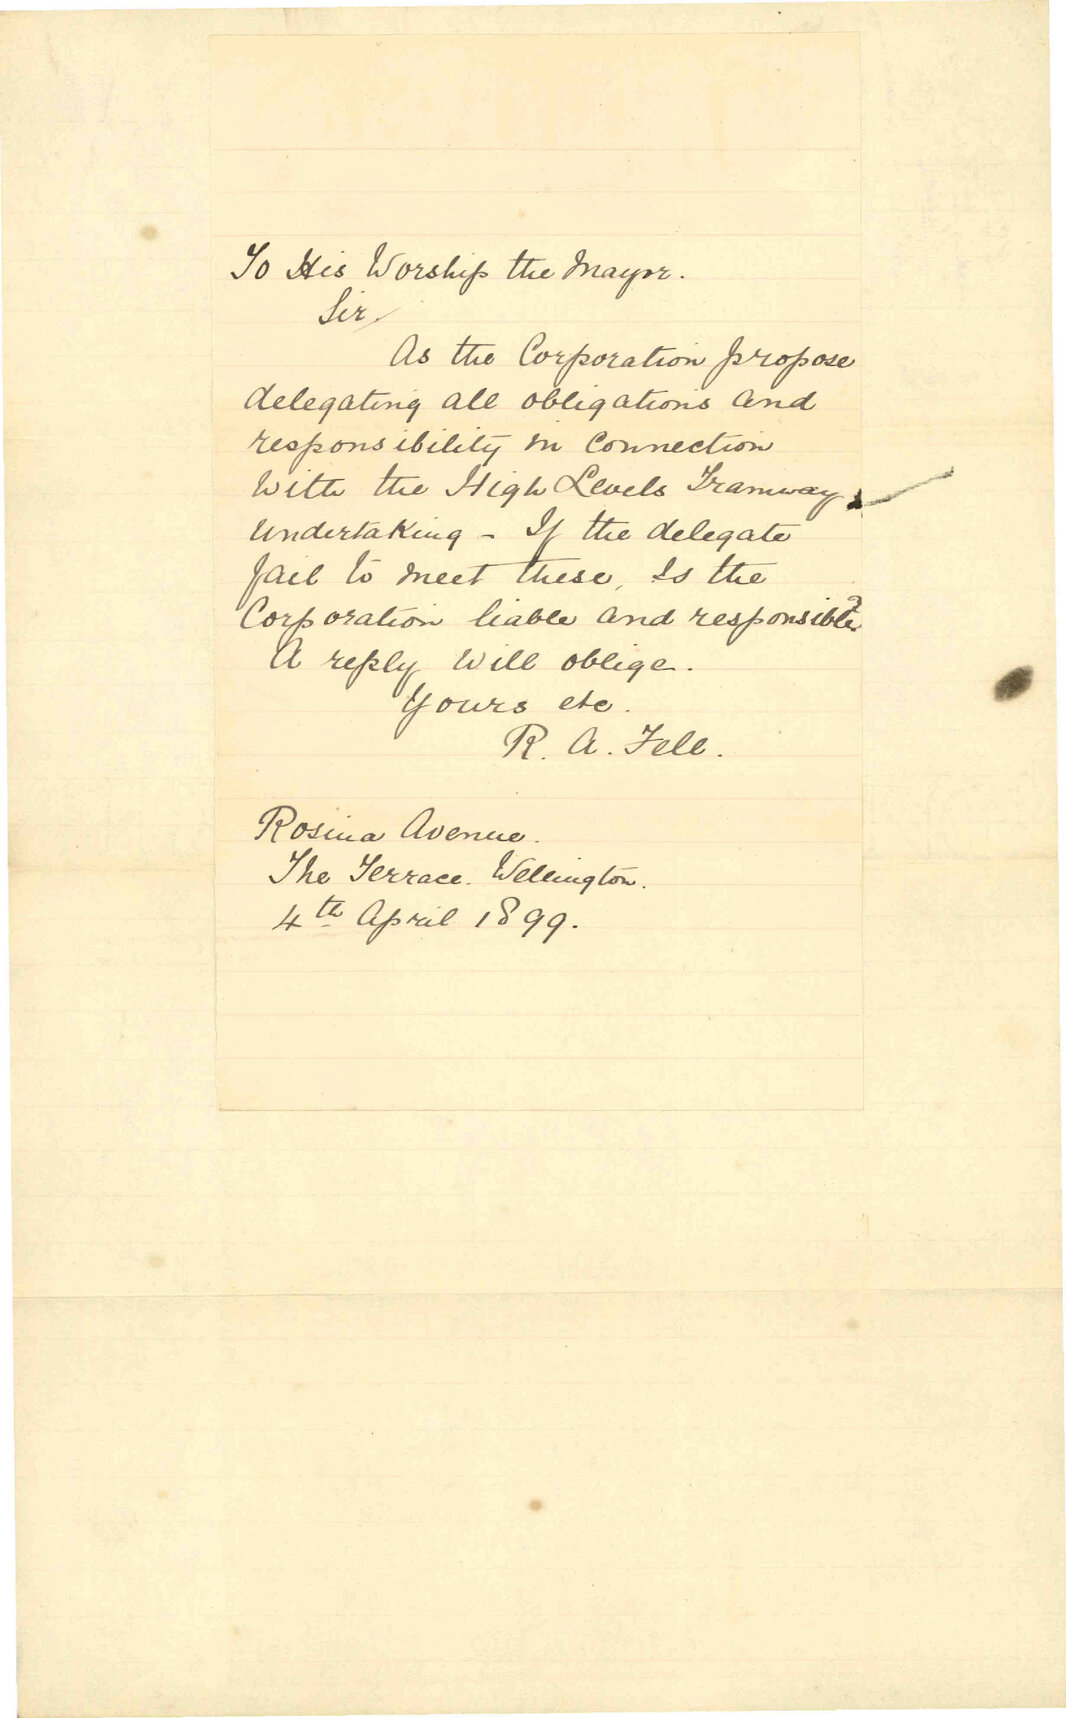 To His Worship the Mayor.
Sir,
As the Corporation propose
delegating all obligations and
responsibility in Connection
With the High Levels Tramway
Undertaking - If the delegate
fail to meet these, Is the
Corporation liable and responsible?
A reply will oblige.
Yours etc.
R. A. Fell.
Rosina Avenue.
The Terrace. Wellington.
4th April 1899.